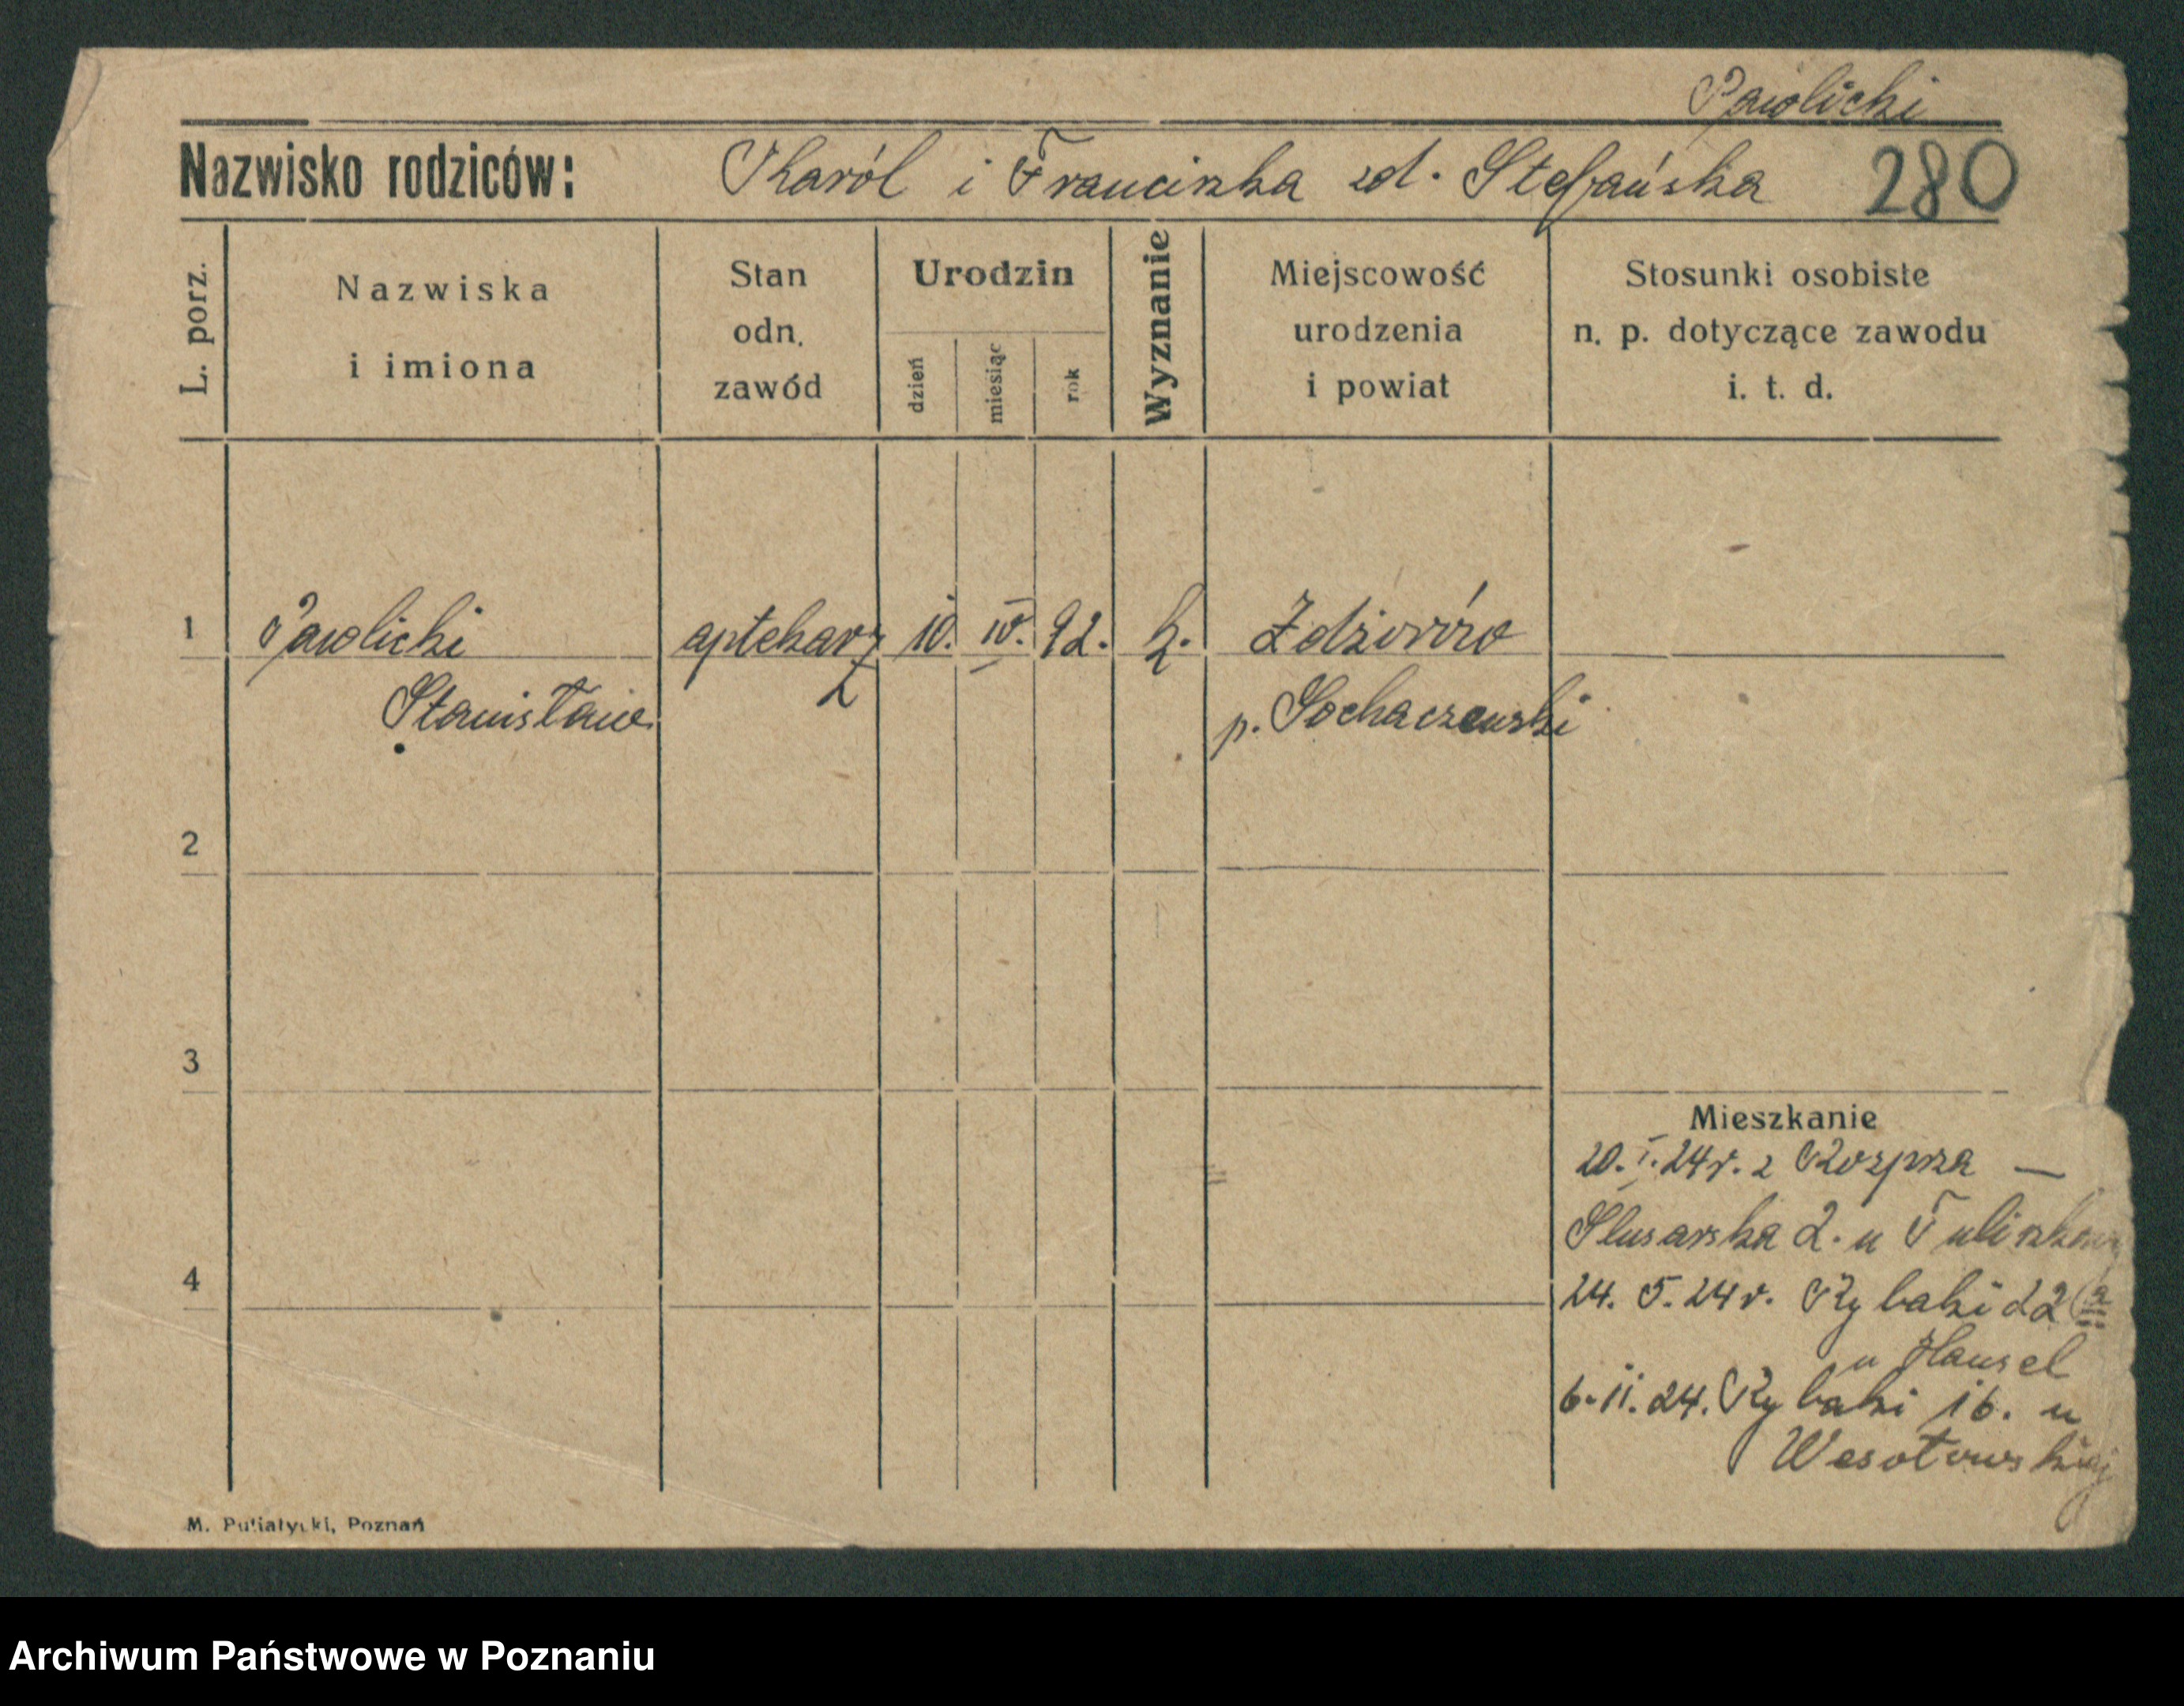 Pawlicki
Nazwisko rodziców: Karól i Franciszka zd. Stefańska 280
L. porz.
Nazwiska
i imiona
Stan
odn.
zawód
Urodzin
dzień
miesiąc
rok
Wyznanie
Miejscowość
urodzenia
i powiat
Stosunki osobiste
n. p. dotyczące zawodu
i. t. d.
1 Pawlicki aptekarz 10. IV. 92. k.
Stanisław p. Sochaczewski
2
3
Mieszkanie
20. I. 24 r. z Rozprza —
Slusarska 2. u
4
24. 5. 24 r. Rybaki 22 a
u Hansel
6. 11. 24. Rybaki 16. u
Wesołowskiej
M. Putiatycki, Poznań
Archiwum Państwowe w Poznaniu